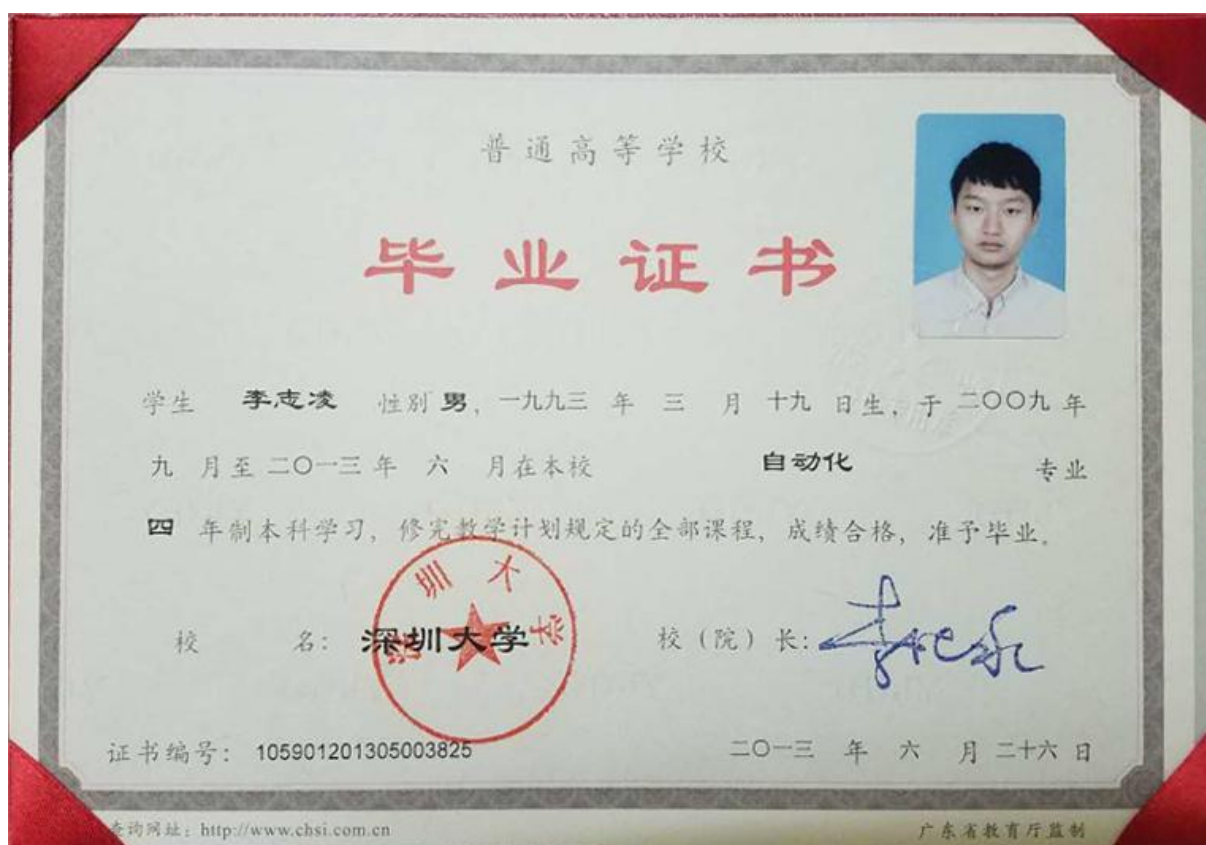 普通高等学校
毕业证书
学生 李志凌 性别 男, 一九九三 年 三 月 十九 日生, 于 二〇〇九 年
九 月至 二〇一三 年 六 月在本校 自动化 专业
四 年制本科学习, 修完教学计划规定的全部课程, 成绩合格, 准予毕业。
校 名: 深圳大学 校 (院) 长:
深圳大学
证书编号: 105901201305003825 二〇一三 年 六 月 二十六 日
查询网址: http://www.chsi.com.cn 广东省教育厅监制